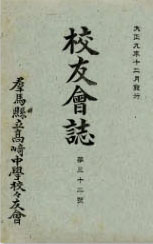 大正九年十二月發行
校友會誌
第三十二號
羣馬縣立高崎中學校々友會